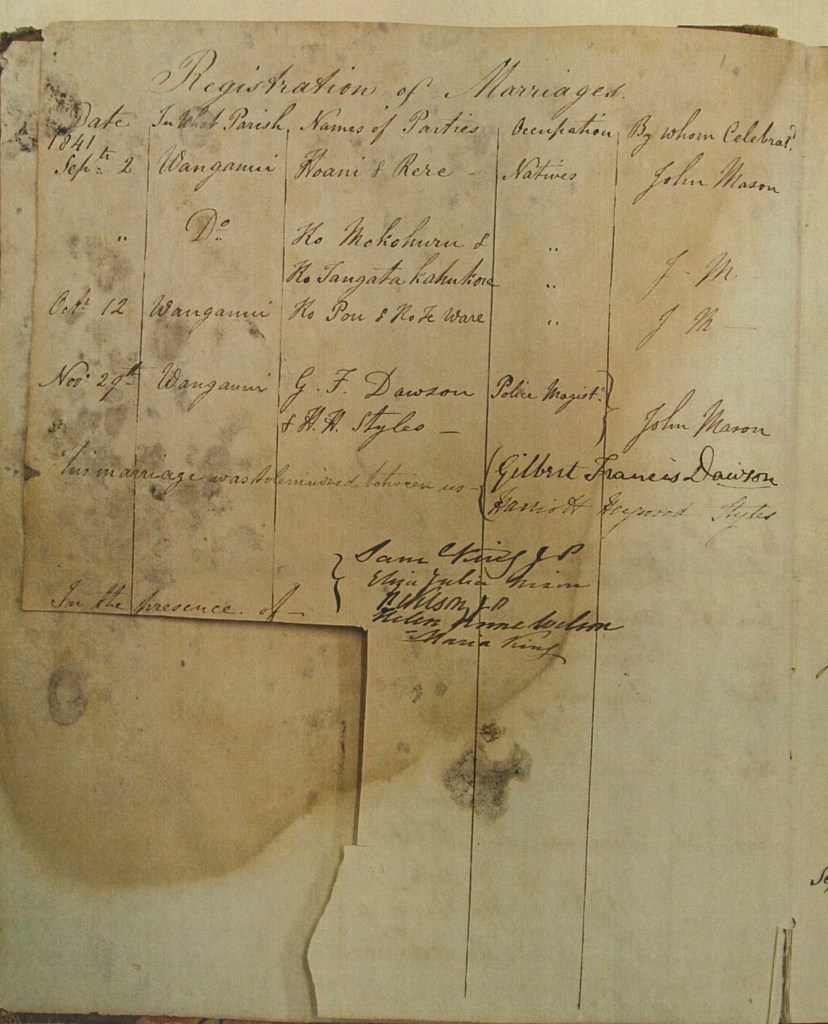 Registration of Marriages.
Date In What Parish Names of Parties Occupation By whom Celebrat.d
1841
Sep.th 2 Wanganui Hoani & Rere - Natives John Mason
" Do Ko Mokohuru & "
Ko Tangata kahukore " J. M.
Oct.r 12 Wanganui Ko Pou & Ko Te Ware " J M —
Nov.r 29th Wanganui G. F. Dawson Police Magist.
& H. H. Styles — John Mason
This marriage was solemnized between us — Gilbert Francis Dawson
Harriott Heywood Styles
Sam King J P
Eliza Julia Nixon
In the presence of — Wilson J.P
Helen Anne Wilson
Maria King